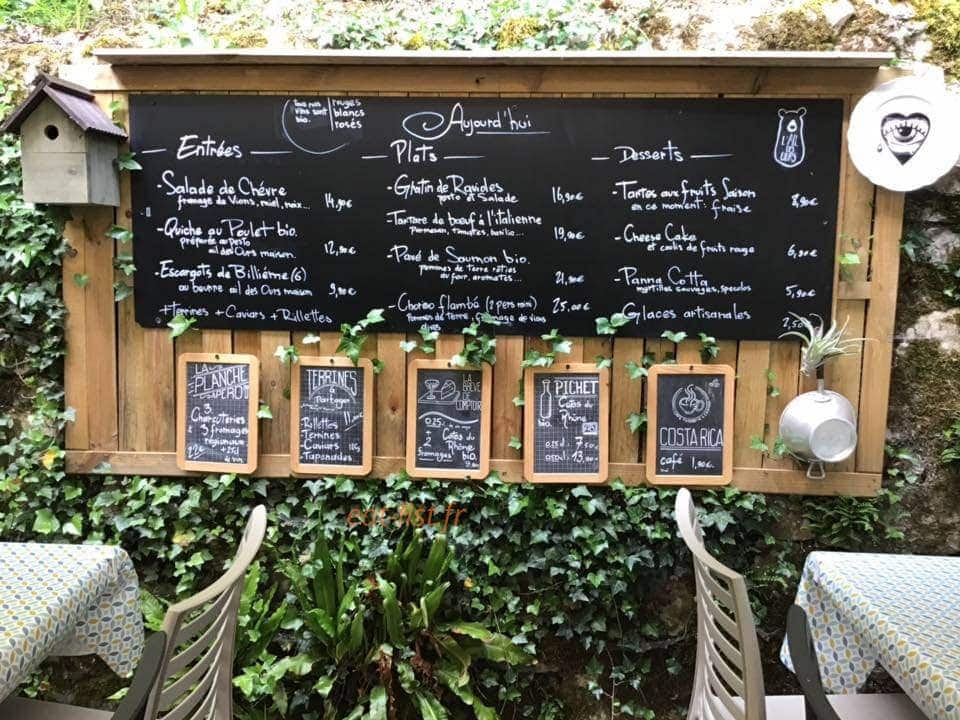 Tous nos
vins sont
bio.
rouges
blancs
rosés
Aujourd'hui
L'AIL
DES
OURS
Entrées
-Salade de Chévre
fromage de Viens, miel, noix...
14,90€
-Quiche au Poulet bio.
préparée au pesto
ail des Ours maison.
12,90€
-Escargots de Billième (6)
au beurre ail des Ours maison
9,90€
+Terrines + Caviars + Rillettes
Plats
-Gratin de Ravioles
pesto et Salade
16,90€
-Tartare de bœuf à l'italienne
Parmesan, tomates, basilic...
19,90€
-Pavé de Saumon bio.
pommes de terre rôties
au four, aromates...
21,90€
-Chorizo flambé (2 pers mini)
Pommes de terre, fromage de Viens
25,00€
Desserts
-Tartes aux fruits Saison
en ce moment: fraise
8,90€
-Cheese Cake
et coulis de fruits rouge
6,90€
-Panna Cotta
myrtilles sauvages, speculos
5,90€
Glaces artisanales
2,50€
LA
PLANCHE
APÉRO
3
Charcuteries
& 3 fromages
régionaux
22€
TERRINES
à
Partager
-Rillettes
-Terrines
-Caviars
-Tapenades
LA
BRÈVE
DE
COMPTOIR
0,25
+
2
fromages
Cotes du
Rhône
bio.
PICHET
Cotes du
Rhône
bio
0,25cl 7,50
0,50cl 13,00
COSTA RICA
café 1,90€
eat-list.fr